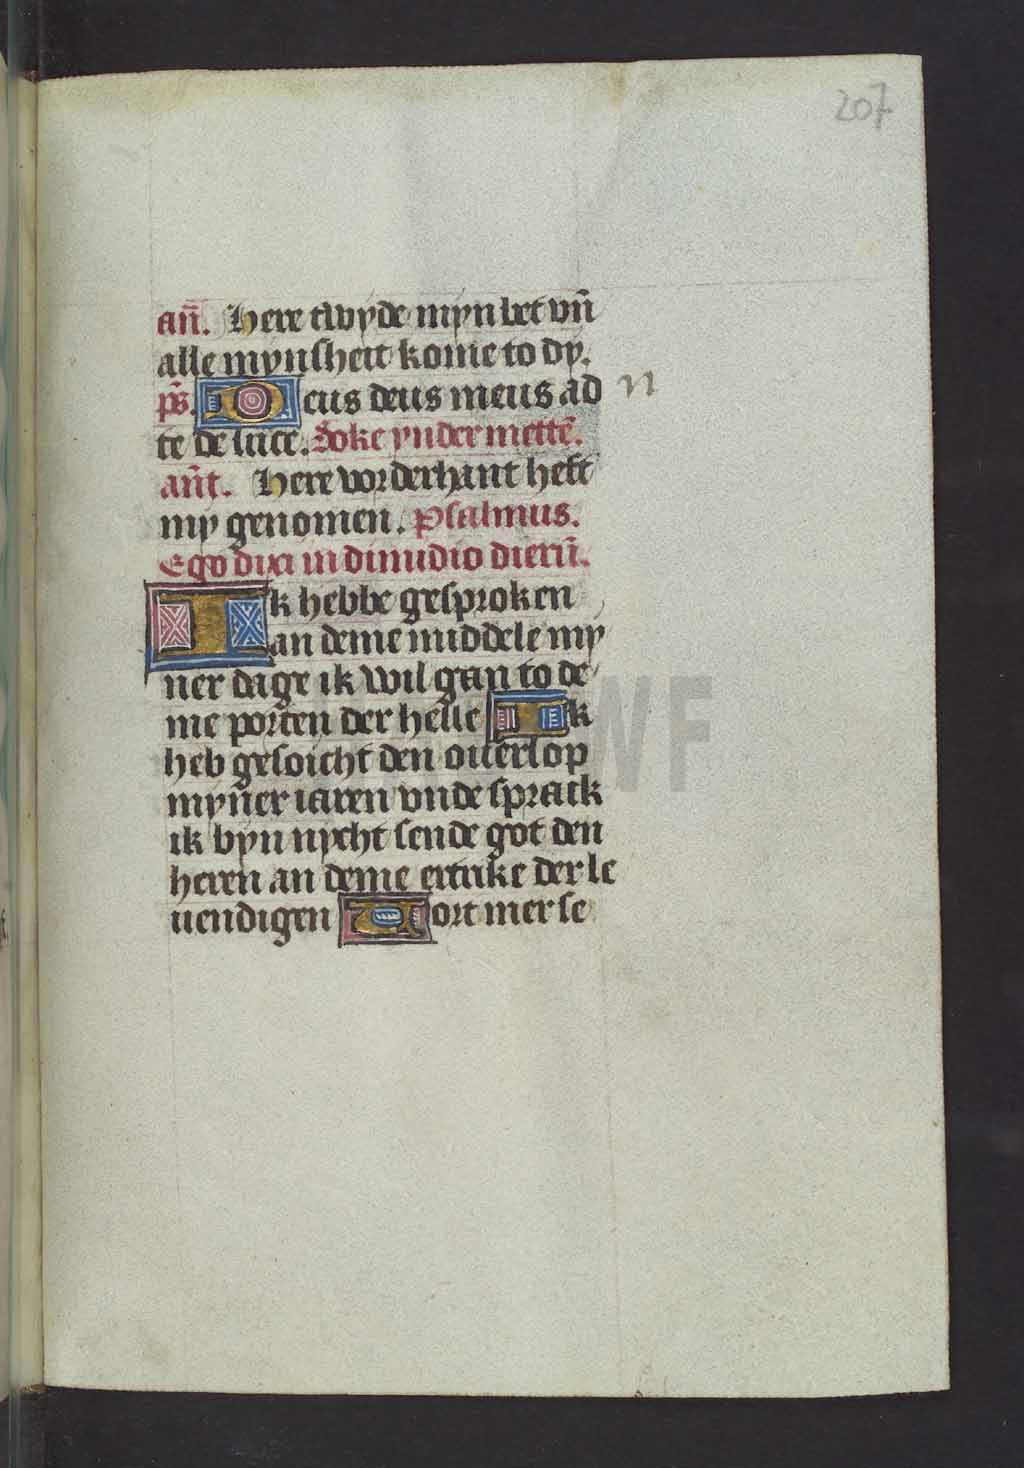 207
an̄. Here twyde myn bet vn̄
alle mynsheit kome to dy.
ps̄. Deus deus meus ad
n
te de luce. Soke yn der mettē.
an̄t. Here vorderhant heft
my genomen. Psalmus.
Ego dixi in dimidio dierū.
Ik hebbe gesproken
an deme middele my
ner dage ik wil gan to de
me porten der helle Ik
heb gesoicht den ouerlop
myner iaren vnde sprack
ik byn nycht sende got den
heren an deme ertrike der le
uendigen Vort mer se
WF